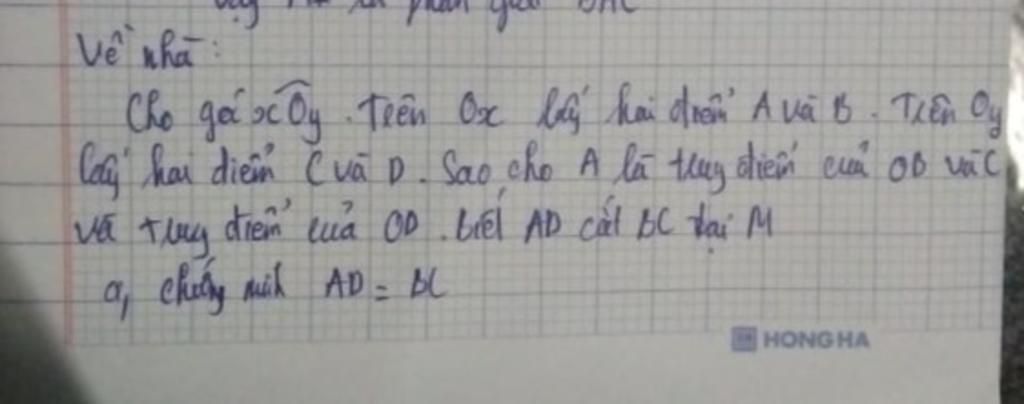 Về nhà:
Cho góc xOy. Trên Ox lấy hai điểm A và B. Trên Oy
lấy hai điểm C và D. Sao cho A là trung điểm của OB và C
và trung điểm của OD. biết AD cắt BC tại M
a, chứng minh AD = BC
HONG HA